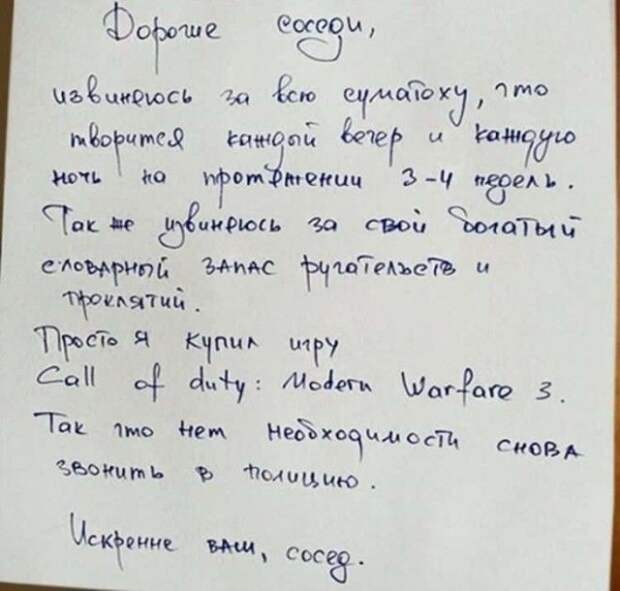 Дорогие соседи,
извиняюсь за всю суматоху, что
творится каждый вечер и каждую
ночь на протяжении 3-4 недель.
Так же извиняюсь за свой богатый
словарный запас ругательств и
проклятий.
Просто я купил игру
Call of duty: Modern Warfare 3.
Так что нет необходимости снова
звонить в полицию.
Искренне ваш, сосед.